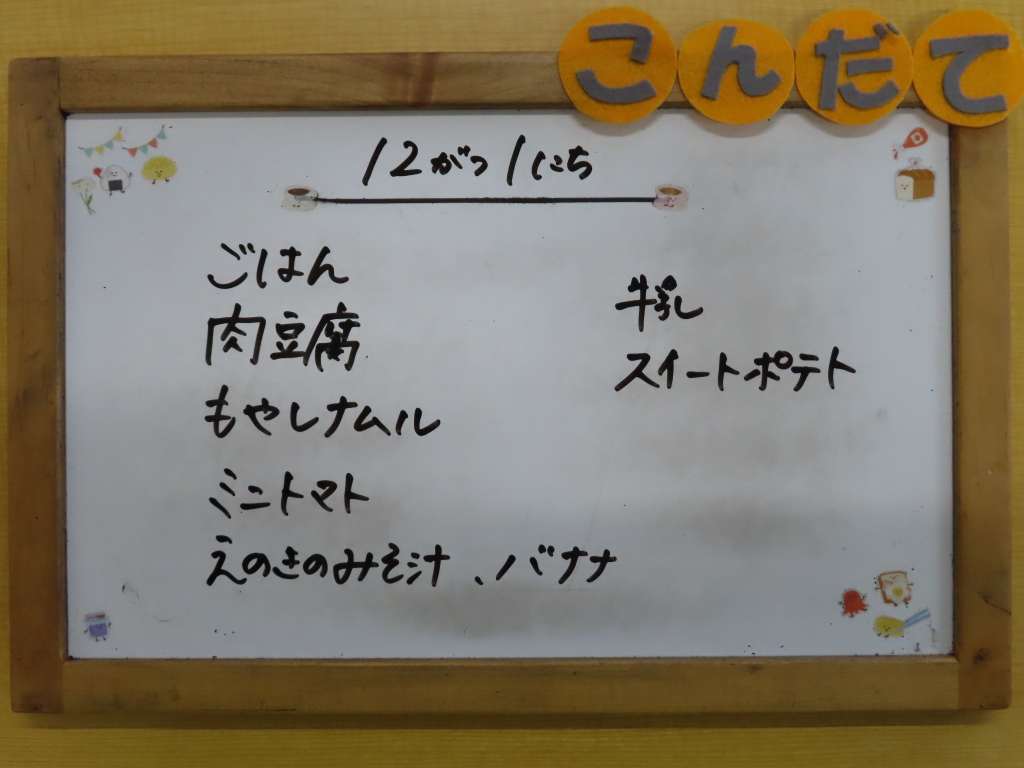 こんだて
12がつ1にち
ごはん
肉豆腐
もやしナムル
ミニトマト
えのきのみそ汁、バナナ
牛乳
スイートポテト